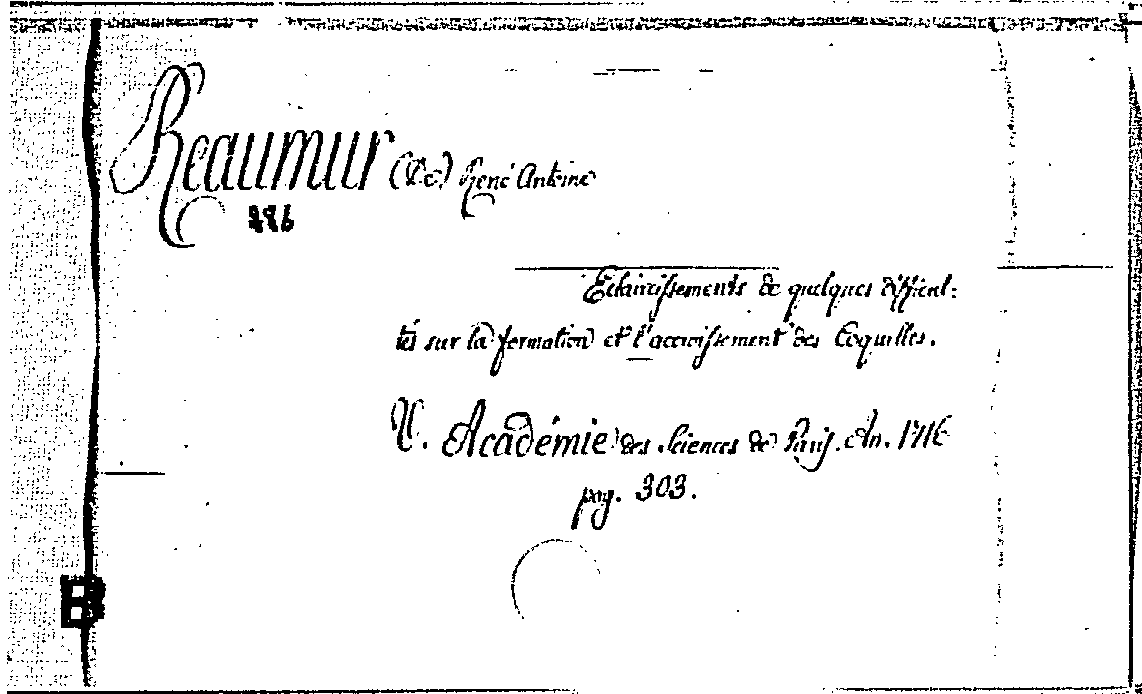 Reaumur (De) René Antoine
Eclaircissements de quelques difficul=
tés sur la formation et l'accroissement des Coquilles.
V. Académie des Sciences de Paris. An. 1716
pag. 303.
B